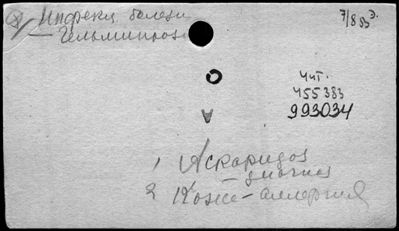 Инфекц. болезн
7/8 83 Э.
— Гельминтоз
Чит.
455383
993034
1 Аскаридоз
— диагноз
2 Кожа — аллергия